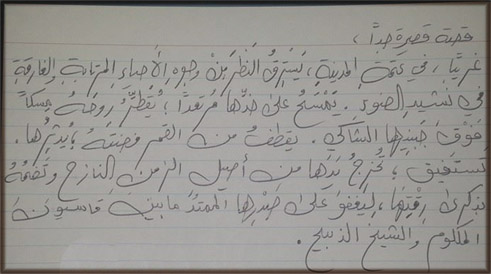 قصة قصيرة جداً ،
غريباً ، في عتمة المدينة ، يَسترقُ النظرَ بينَ وجوه الأحياءِ المرتابة والغارقةِ
في نشيدِ الضوء . يَمْسَحُ على خدّها مُرتعداً ؛ يُقطّرُ روحَهُ مِسكاً
فوقَ جبينِها الشاكي . يقطفُ من القمر فضّتَهُ ؛ يُدثّرُها .
تستفيق ؛ تُخرجُ يدَها من أصيلِ الزمنِ النازحِ وتَضمُّهُ
بذكرى رِقّتِها ، لِيَغفوَ على صَدرِها الممتدّ ما بينَ قاسيونَ
المكلومِ والشيخِ الذبيح .